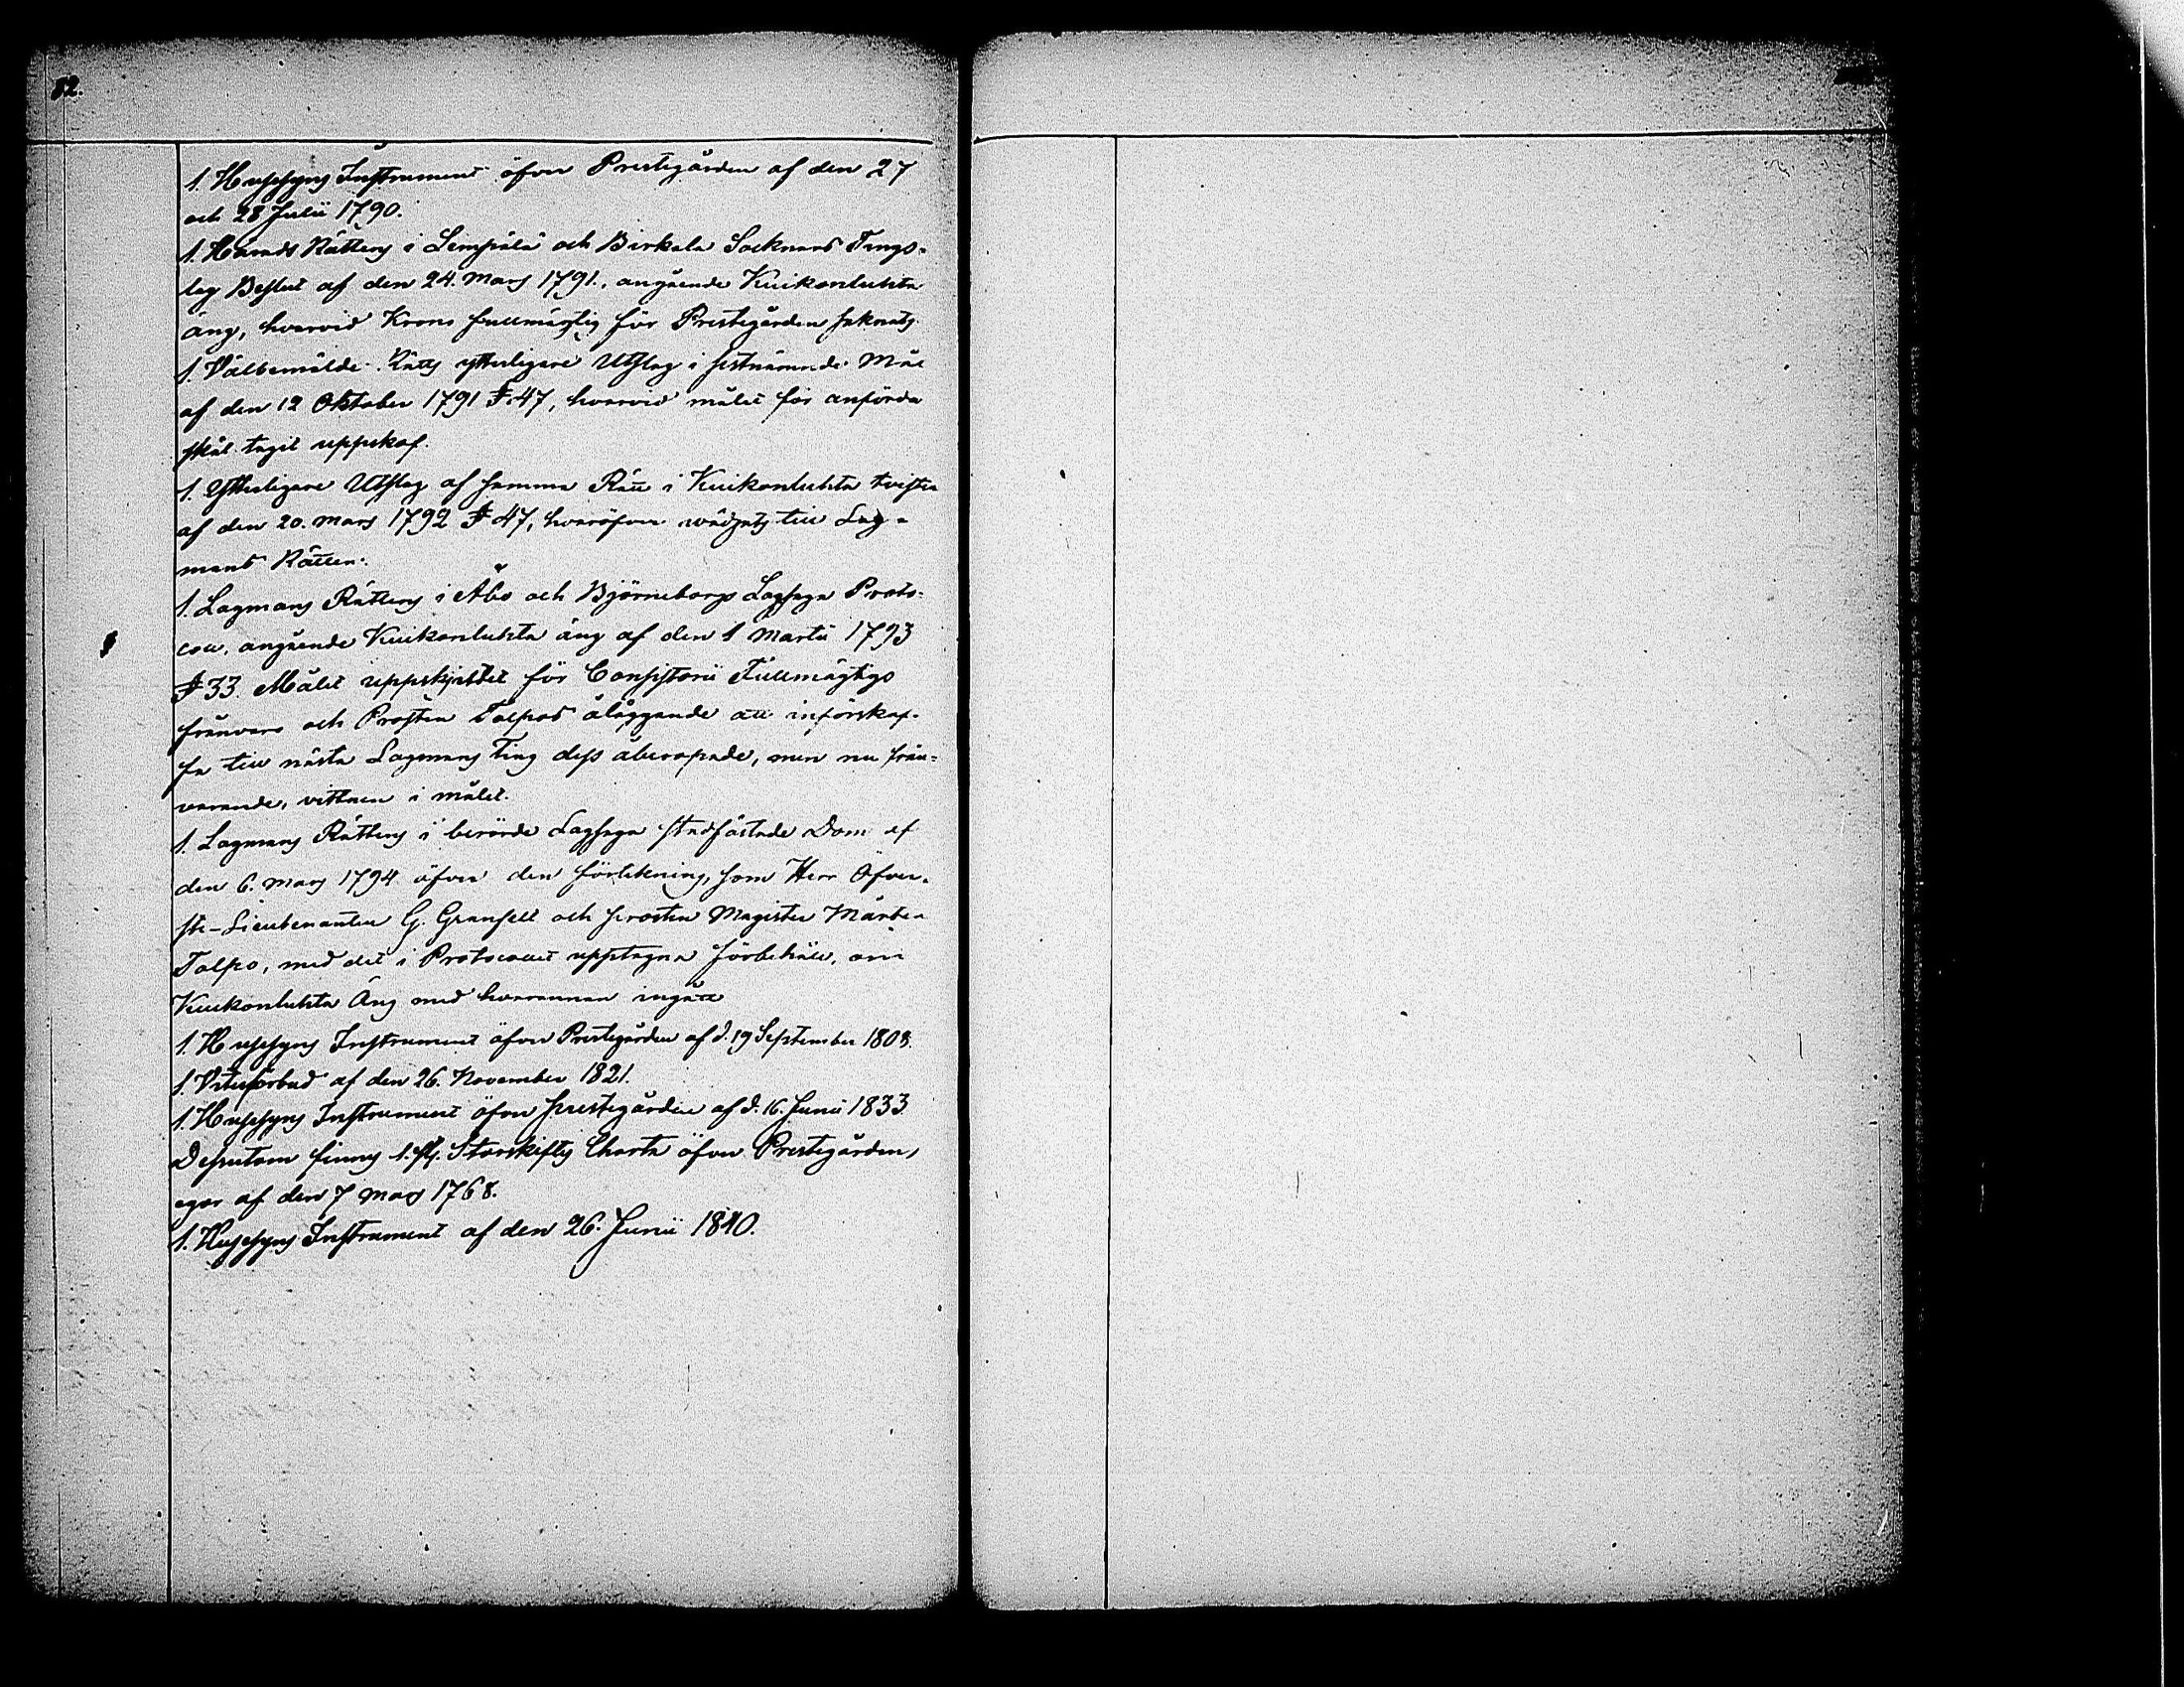 82.
1. Hussyns Instrument öfver Prestegården af den 27
och 28 Julii 1790.
1. Härads Rättens i Lempälä och Birkala Socknars Tings-
lag Beslut af den 24. Mars 1791., angående Kuikonluhta
äng, hvarvid Krono fullmägtig för Prestegården saknats.
1. Välbemälde Rätts ytterligare Utslag i sistnämnde Mål
af den 12 Oktober 1791 § 47, hvarvid målet för anförda
skäl tagit uppskof.
1. Ytterligare Utslag af samma Rätt i Kuikonluhta tvisten
af den 20. Mars 1792 § 47, hvaröfver vädjats till Lag-
mans Rätten.
1. Lagmans Rättens i Åbo och Björneborgs Lagsaga Proto-
coll, angående Kuikonluhta äng af den 1 Martii 1793
§ 33. Målet uppskjutet för Consistorii Fullmägtigs
frånvaro och Prosten Talpos åläggande att införskaf-
fa till nästa Lagmans Ting dess åberopade, men nu från-
varande, vittnen i målet.
1. Lagmans Rättens i berörde Lagsaga stadfästade Dom af
den 6. Mars 1794 öfver den förlikning, som Herr Öfver-
ste-Lieutenanten G. Granfelt och prosten Magister Mårten
Talpo, med det i Protocollet upptagna förbehåll, om
Kuikonluhta Äng med hvarannan ingått
1. Hussyns Instrument öfver Prestegården af d. 19 September 1803.
1. Vitesförbud af den 26. November 1821.
1. Hussyns Instrument öfver prestegården af d. 16. Junii 1833.
Dessutom finnes 1. st. Storskiftes Charta öfver Prestegårdens
egor af den 7 Mars 1768.
1. Hussyns Instrument af den 26. Junii 1840.